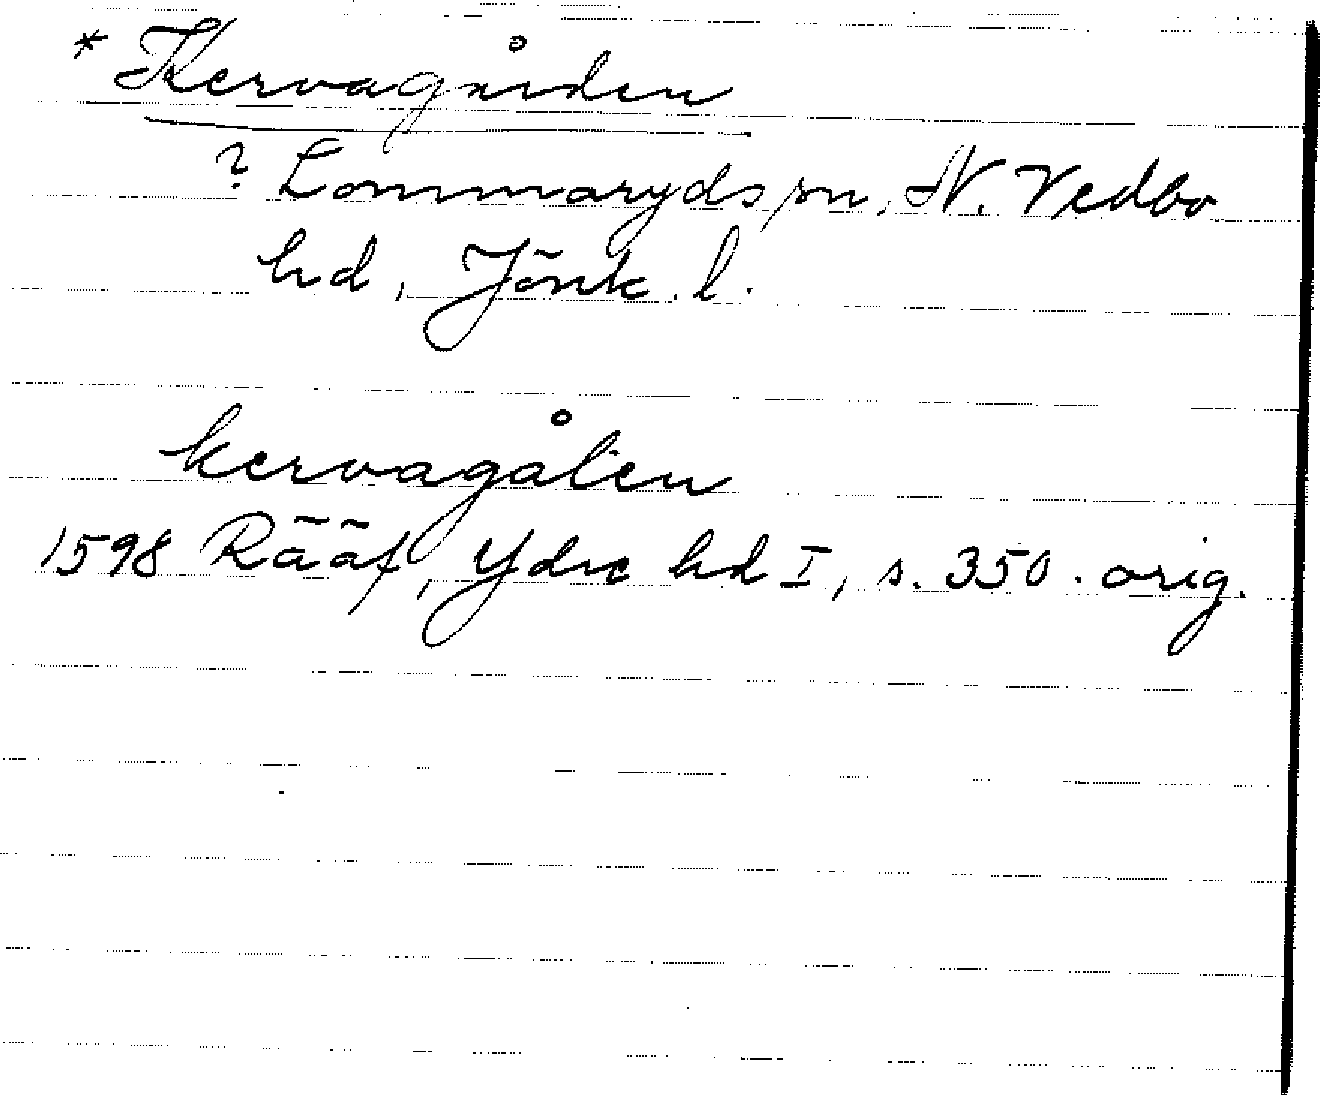 * Kervagården
? Lommaryds sn, N. Vedbo
hd, Jönk. l.
kervagålen
1598 Rääf, Ydre hd I, s. 350. orig.